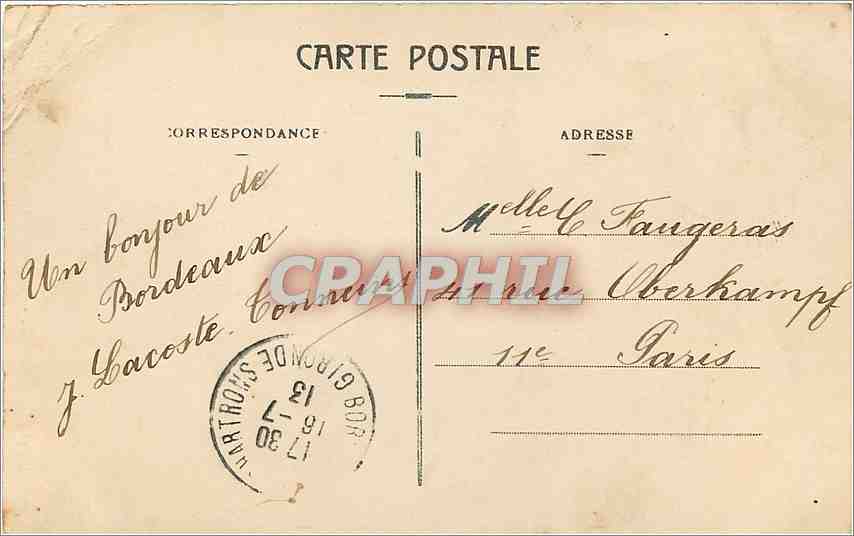 CARTE POSTALE
CORRESPONDANCE
ADRESSE
Un bonjour de
Bordeaux
J. Lacoste.
Melle C Faugeras
41 rue Oberkampf
11e Paris
CPAPHIL
BOR GIRONDE
17 30
16 - 7
13